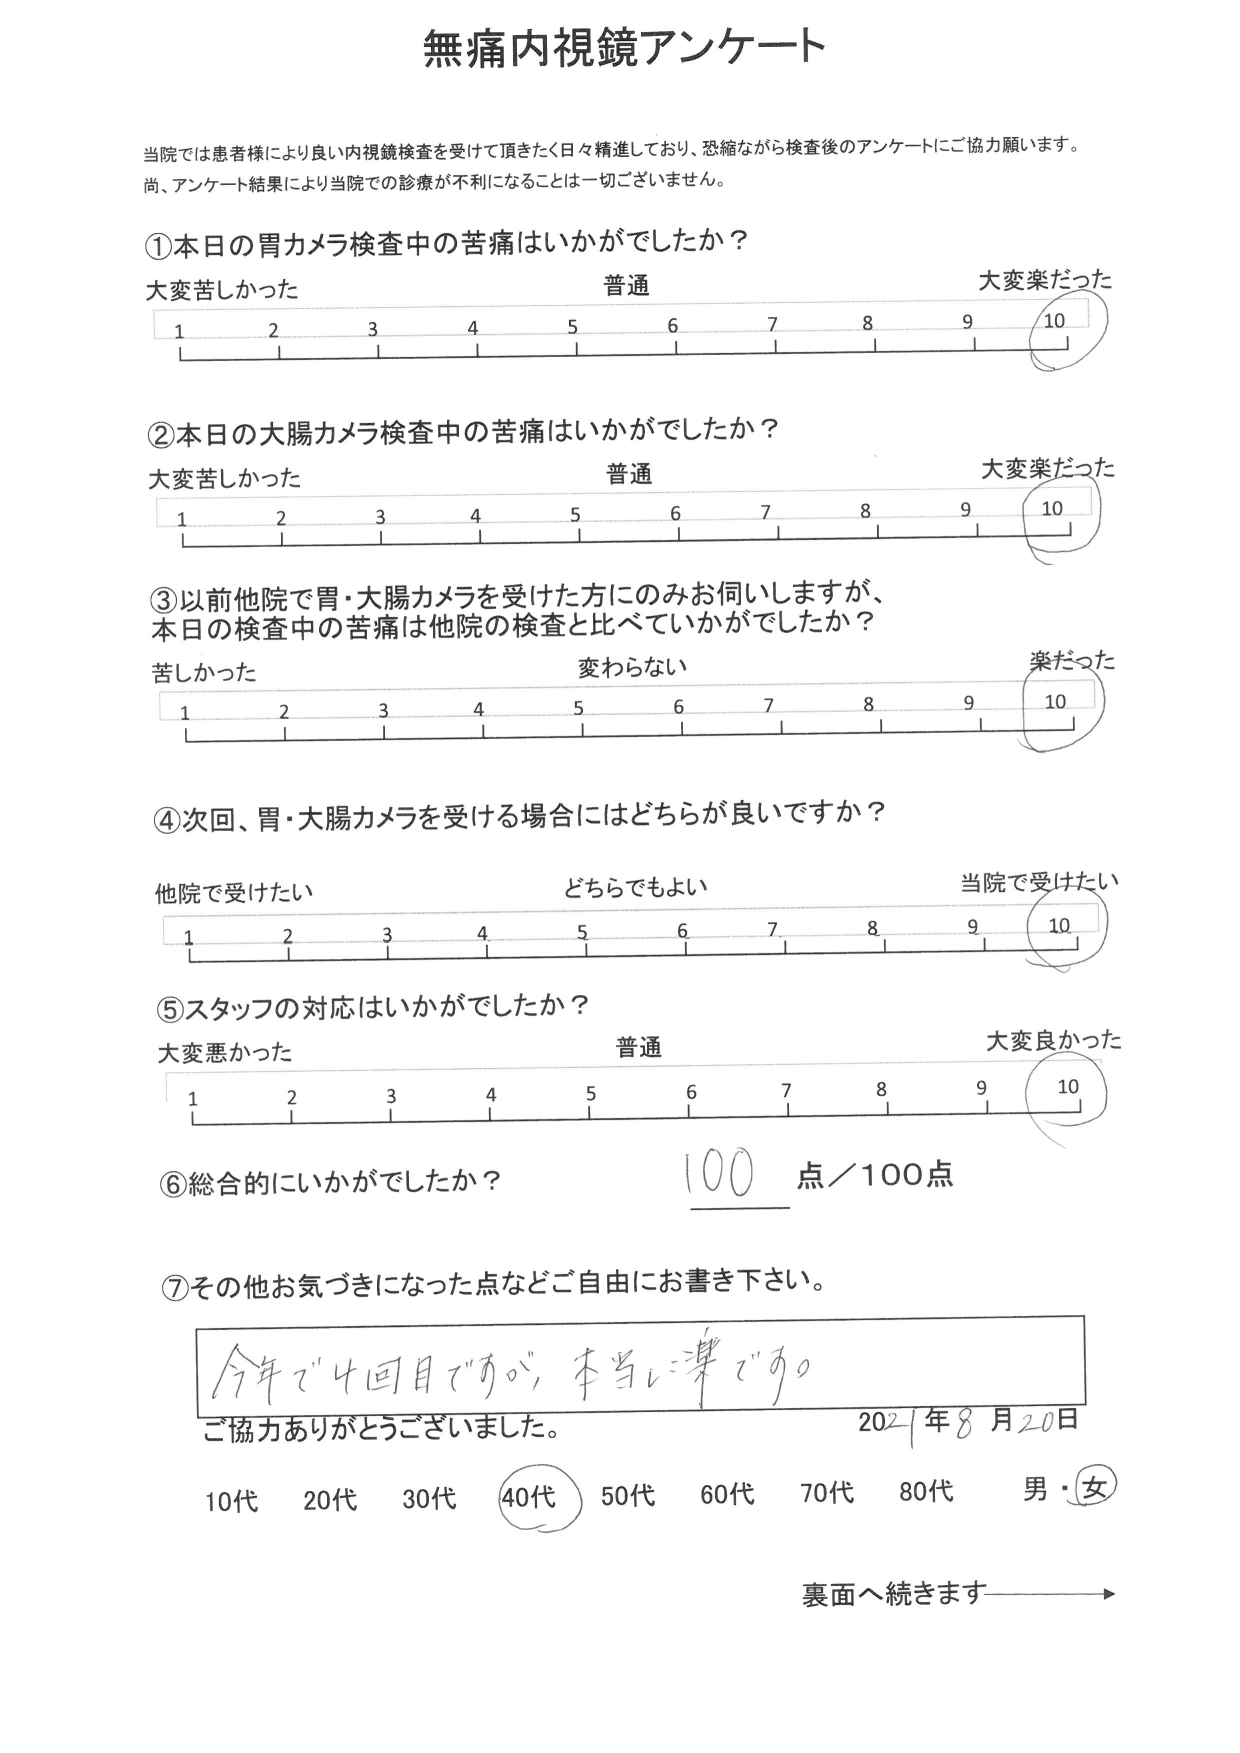 無痛内視鏡アンケート
当院では患者様により良い内視鏡検査を受けて頂きたく日々精進しており、恐縮ながら検査後のアンケートにご協力願います。
尚、アンケート結果により当院での診療が不利になることは一切ございません。
①本日の胃カメラ検査中の苦痛はいかがでしたか？
大変苦しかった 普通 大変楽だった
1 2 3 4 5 6 7 8 9 10
②本日の大腸カメラ検査中の苦痛はいかがでしたか？
大変苦しかった 普通 大変楽だった
1 2 3 4 5 6 7 8 9 10
③以前他院で胃・大腸カメラを受けた方にのみお伺いしますが、
本日の検査中の苦痛は他院の検査と比べていかがでしたか？
苦しかった 変わらない 楽だった
1 2 3 4 5 6 7 8 9 10
④次回、胃・大腸カメラを受ける場合にはどちらが良いですか？
他院で受けたい どちらでもよい 当院で受けたい
1 2 3 4 5 6 7 8 9 10
⑤スタッフの対応はいかがでしたか？
大変悪かった 普通 大変良かった
1 2 3 4 5 6 7 8 9 10
⑥総合的にいかがでしたか？ 100 点／100点
⑦その他お気づきになった点などご自由にお書き下さい。
今年で4回目ですが、本当に楽です。
ご協力ありがとうございました。 2021年8月20日
10代 20代 30代 40代 50代 60代 70代 80代 男・女
裏面へ続きます